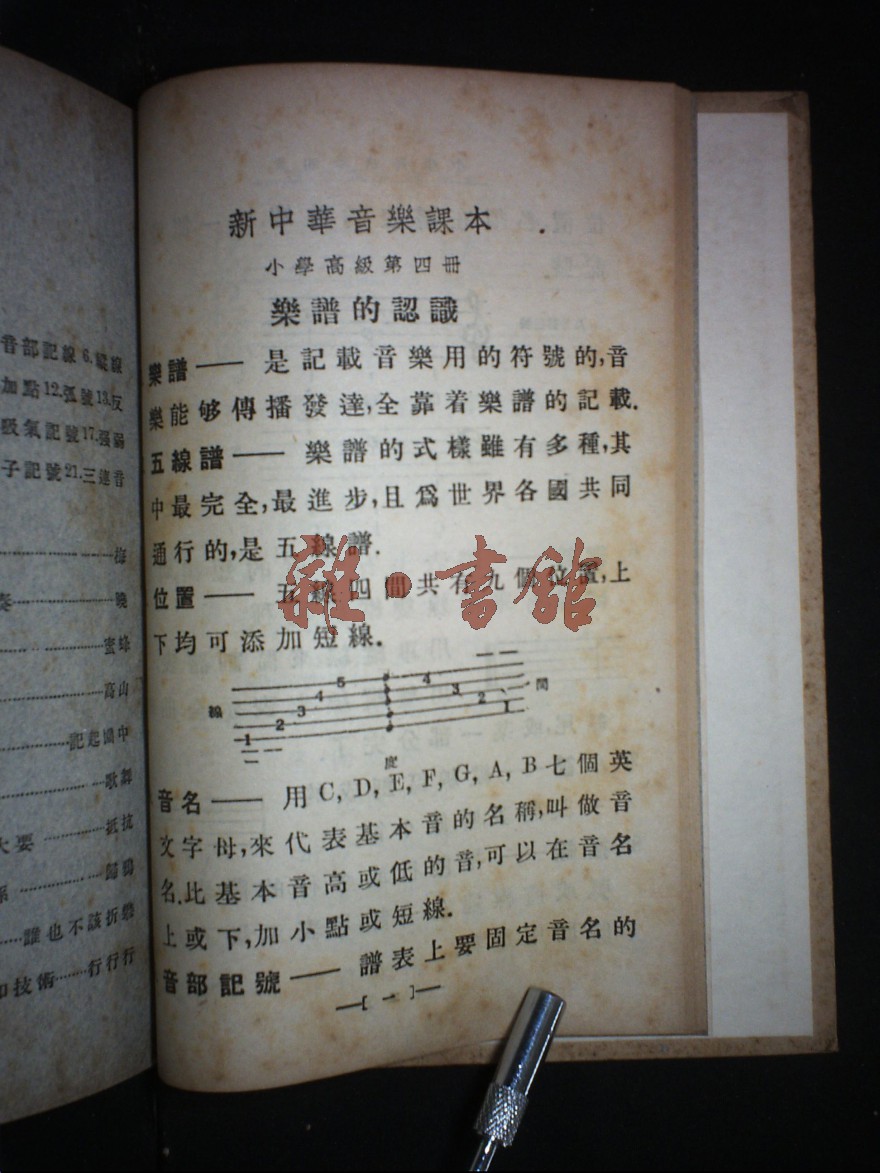 新中華音樂課本
小學高級第四冊
樂譜的認識
樂譜—— 是記載音樂用的符號的,音
樂能够傳播發達,全靠着樂譜的記載.
五線譜—— 樂譜的式樣雖有多種,其
中最完全,最進步,且爲世界各國共同
通行的,是五線譜.
位置—— 五線四間共有九個位置,上
下均可添加短線.
線 1 2 3 4 5 4 3 2 1 間
度
音名—— 用C, D, E, F, G, A, B七個英
文字母,來代表基本音的名稱,叫做音
名.比基本音高或低的音,可以在音名
上或下,加小點或短線.
音部記號—— 譜表上要固定音名的
—[ 一 ]—
雜·書館
音部記線 6.縱線
加點 12.弧號 13.反
吸氣記號 17.强弱
子記號 21.三連音
梅
曉
蜜蜂
高山
記起國中
歌譯
大要 抵抗
歸鴉
誰也不該折斷
和技術 行行行